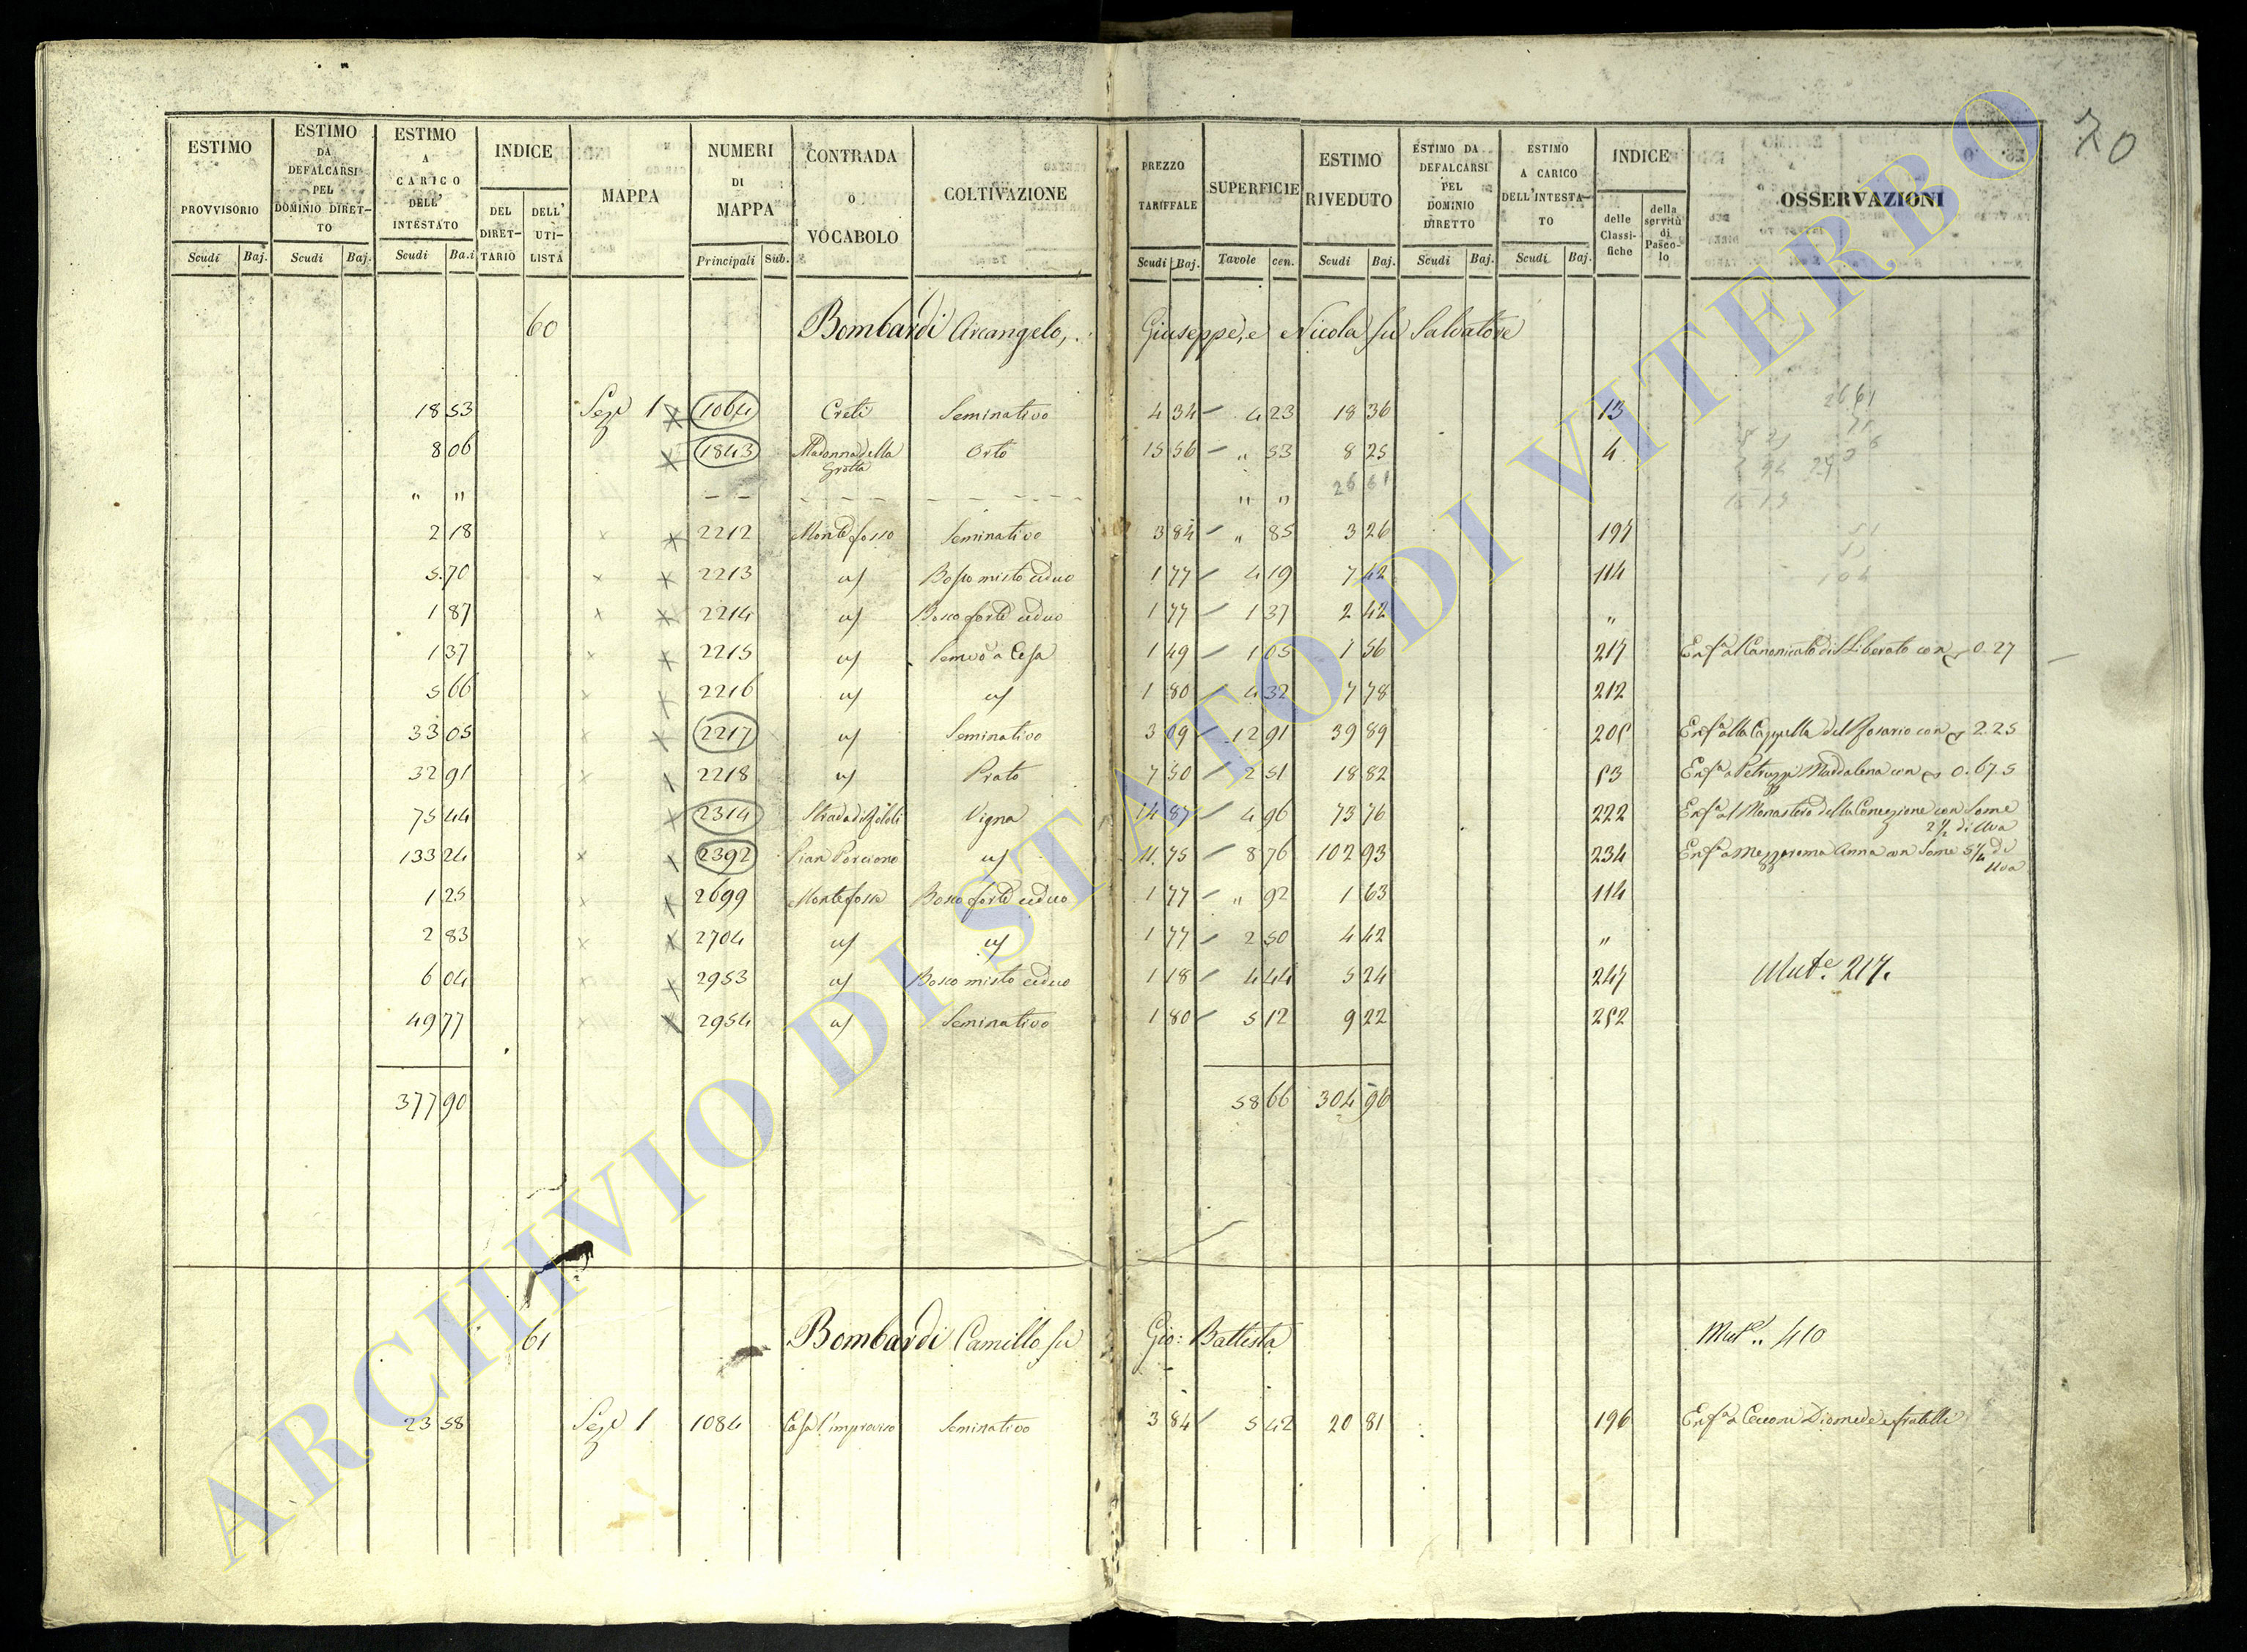 70
ESTIMO PROVVISORIO Scudi Baj.
ESTIMO DA DEFALCARSI PEL DOMINIO DIRETTO Scudi Baj.
ESTIMO A CARICO DELL' INTESTATO Scudi Ba.i
INDICE DEL DIRETTARIO DELL' UTILISTA
MAPPA
NUMERI DI MAPPA Principali Sub.
CONTRADA O VOCABOLO
COLTIVAZIONE
PREZZO TARIFFALE Scudi Baj.
SUPERFICIE Tavole cen.
ESTIMO RIVEDUTO Scudi Baj.
ESTIMO DA DEFALCARSI PEL DOMINIO DIRETTO Scudi Baj.
ESTIMO A CARICO DELL'INTESTATO Scudi Baj.
INDICE delle Classifiche della servitù di Pascolo
OSSERVAZIONI
60 Bombardi Arcangelo, Giuseppe, e Nicola fu Salvatore
18 53 Sez. 1 1064 Creti Seminativo 4 34 4 23 18 36 13
8 06 1843 Madonna della Grotta Orto 15 56 " 53 8 25 4
" " – – – – – – – – – – " " 26 61
2 18 2212 Montefosso Seminativo 3 84 " 85 3 26 197
5.70 2213 u/ Bosco misto ceduo 1 77 4 19 7 42 114
1 87 2214 u/ Bosco forte ceduo 1 77 1 37 2 42 "
1 37 2215 u/ Semvo a Cesa 1 49 1 05 1 56 217 Enfa al Canonicato di S Liberato con 0.27
5 66 2216 u/ u/ 1 80 4 32 7 78 212
33 05 2217 u/ Seminativo 3 09 12 91 39 89 205 Enfa alla Cappella del Rosario con 2.25
32 91 2218 u/ Prato 7 50 2 51 18 82 53 Enfa a Petruzzi Maddalena con 0.67.5
75 44 2314 Strada di Vigna 14 87 4 96 73 76 222 Enfa al Monastero della Concezione con Some 2 1/2 di Uva
133 24 2392 Pian Porciano u/ 11.75 8 76 102 93 234 Enfa a Mezzaroma Anna con Some 5 1/4 di Uva
1 25 2699 Montefosso Bosco forte ceduo 1 77 " 92 1 63 114
2 83 2704 u/ u/ 1 77 2 50 4 42 "
6 04 2953 u/ Bosco misto ceduo 1 18 4 44 5 24 247 Mute. 217.
49 77 2954 u/ Seminativo 1 80 5 12 9 22 252
377 90 58 66 304 96
61 Bombardi Camillo fu Gio: Battista Mut. 410
23 58 Sez. 1 1084 Casa l'improviso Seminativo 3 84 5 42 20 81 196 Enfa a Cecconi Diomede e fratelli
ARCHIVIO DI STATO DI VITERBO